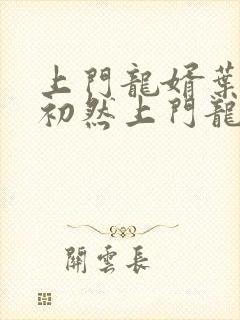 上門龍婿葉
初然上門龍
關雲長